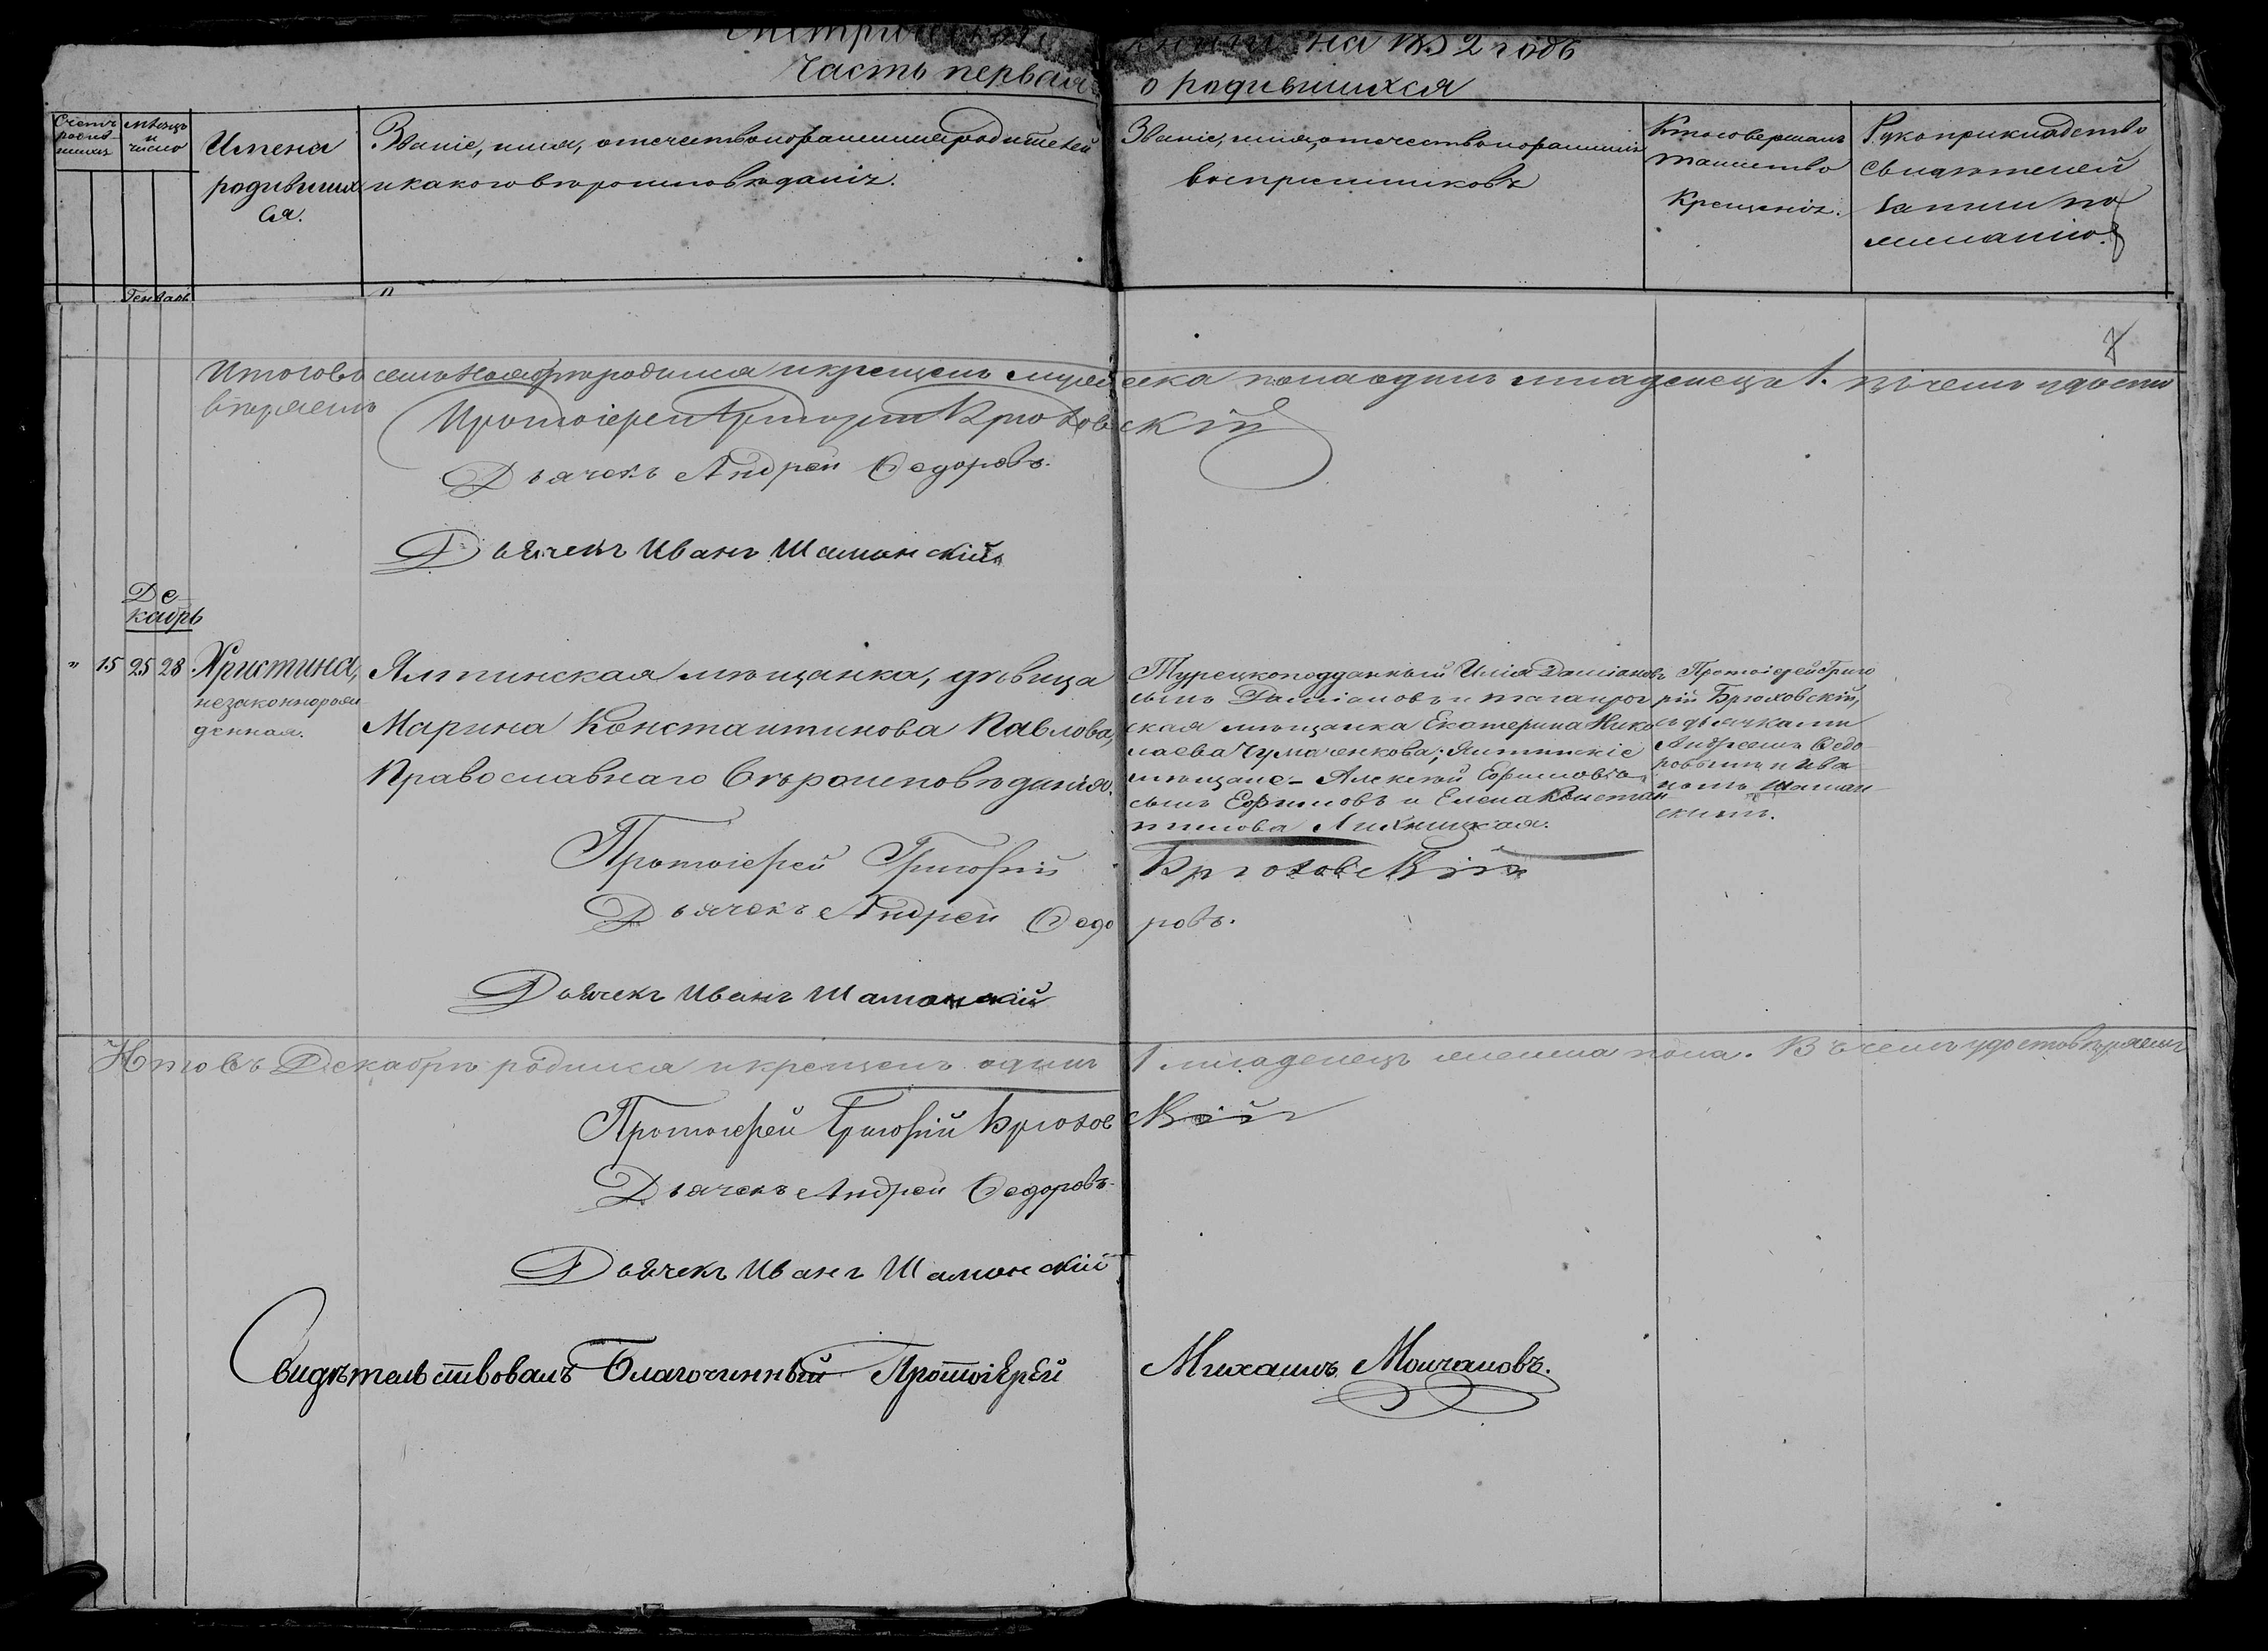 книги на 1852 годъ
Часть первая о родившихся
Счетъ родив-шихся
мѣсяцъ и число
Имена родившихся.
Званіе, имя, отечество и фамилія родителей и какого вѣроисповѣданія.
Званіе, имя, отечество и фамилія воспріемниковъ
Кто совершалъ таинство Крещенія.
Рукоприкладство свидѣтелей записи по желанію.
Генварь
7
Итого въ семъ Ноябрѣ родился и крещенъ мужеска пола одинъ младенецъ 1. въ чемъ удосто
вѣряемъ
Протоіерей Григорій Брюховскій
Дьячекъ Андрей Федоровъ.
Дьячекъ Иванъ Шаманскій
Де-
кабрь
" 15 25 28
Христина,
незаконнорож
денная.
Ялтинская мѣщанка, дѣвица
Марина Константинова Павлова,
Православнаго вѣроисповѣданія.
Турецкоподданный Илія Даміановъ
сынъ Даміановъ и таганрог
ская мѣщанка Екатерина Нико
лаева Чумаченкова; Ялтинскіе
мѣщане - Алексѣй Ефимовъ
сынъ Ефимовъ и Елена Констан
тинова Лихницкая.
Протоіерей Григо
рій Брюховскій,
съ дьячками
Андреемъ Федо
ровымъ и Ива
номъ Шаман
скимъ.
Протоіерей Григорій Брюховскій
Дьячекъ Андрей Федоровъ.
Дьячекъ Иванъ Шаманскій
Итого въ Декабрѣ родился и крещенъ одинъ 1 младенецъ женска пола. Въ чемъ удостовѣряемъ
Протоіерей Григорій Брюховскій
Дьячекъ Андрей Федоровъ
Дьячекъ Иванъ Шаманскій
Свидѣтельствовалъ Благочинный Протоіерей Михаилъ Молчановъ.